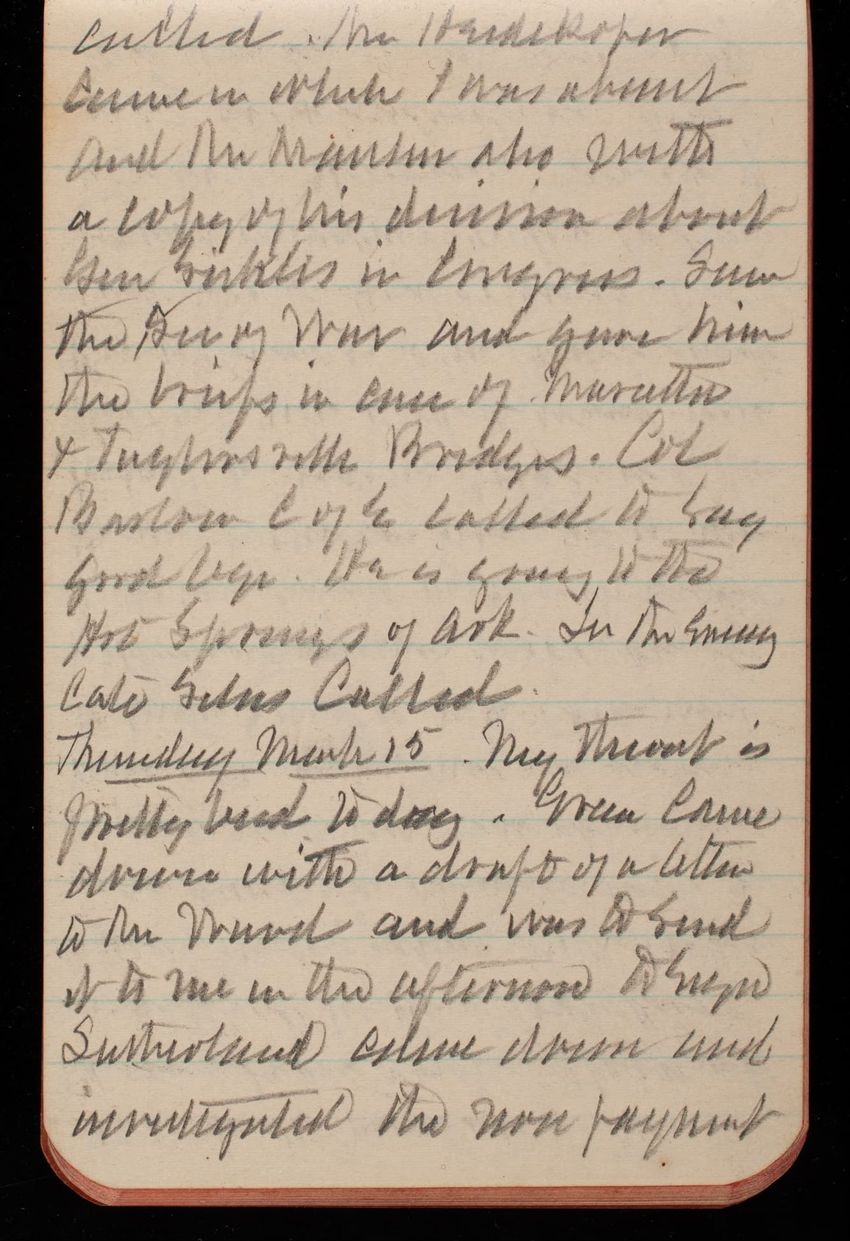 called. Mr Huidekoper
came in while I was absent
and Mr also with
a copy of his decision about
Gen Sickles in Congress. Saw
the Sec of War and gave him
the briefs in case of Marietta
& Taylorsville Bridges. Col
Barlow C of E called to say
good bye. He is going to the
Hot Springs of Ark. In the Evening
Cato Sells Called.
Thursday March 15. My throat is
pretty bad to day. Green Came
down with a draft of a letter
to Mr and was to send
it to me in the afternoon to sign
Sutherland came down and
investigated the non payment